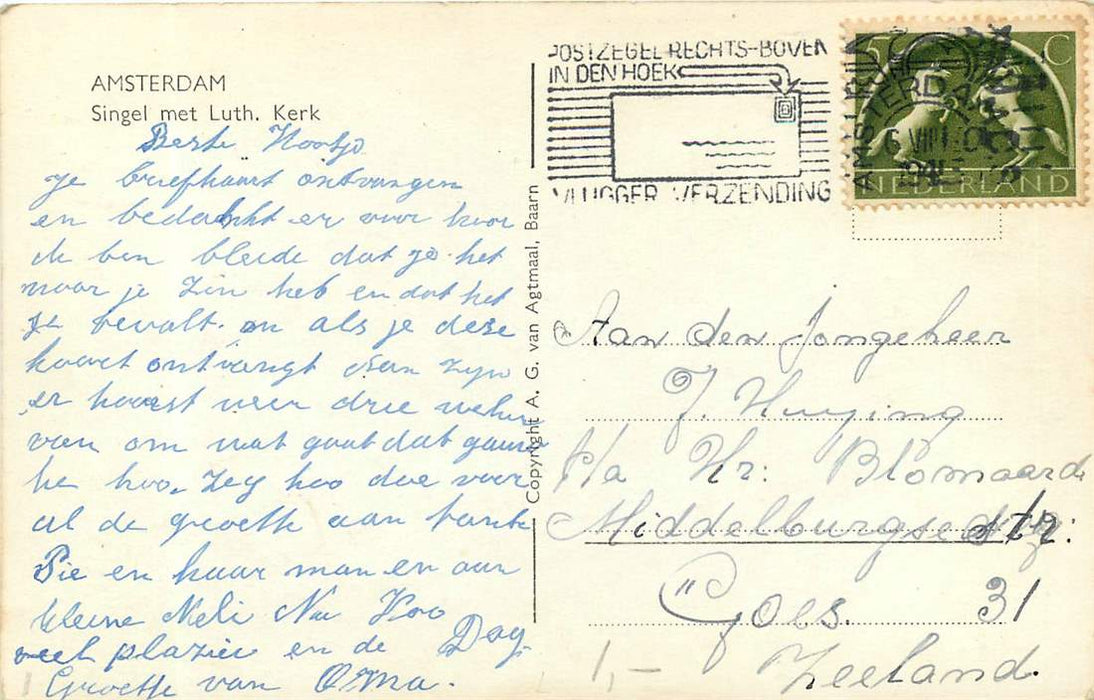 AMSTERDAM
Singel met Luth. Kerk
Beste Kootje
je briefkaart ontvangen
en bedankt er voor hoor
ik ben bleide dat je het
naar je zin heb en dat het
je bevalt. en als je deze
kaart ontvangt dan zijn
er haast weer drie weken
van om wat gaat dat gauw
he koo. Zeg koo doe voor
al de groette aan tante
Pie en haar man en aan
kleine Neli Nu Koo
veel plazier en de Dag
Groette van Oma.
Copyright A. G. van Agtmaal, Baarn
POSTZEGEL RECHTS-BOVEN
IN DEN HOEK
VLUGGER VERZENDING
5 C
AMSTERDAM
NEDERLAND
Aan den Jongeheer
J. Huijing
P/a Hr: Blomaard
Middelburgsestr:
Goes. 31
Zeeland.
1,-